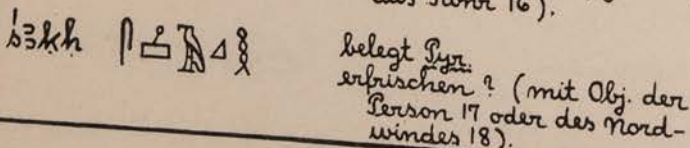 16).
śꜣḳḥ 𓋴 𓄿𓈎𓎛 belegt Pyr.
erfrischen ? (mit Obj. der
Person 17 oder des Nord-
windes 18).